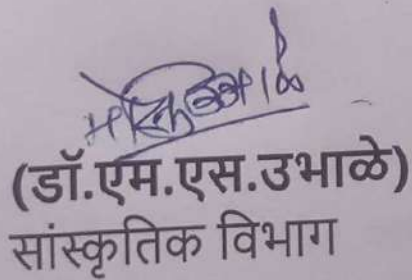 (डॉ.एम.एस.उभाळे)
सांस्कृतिक विभाग